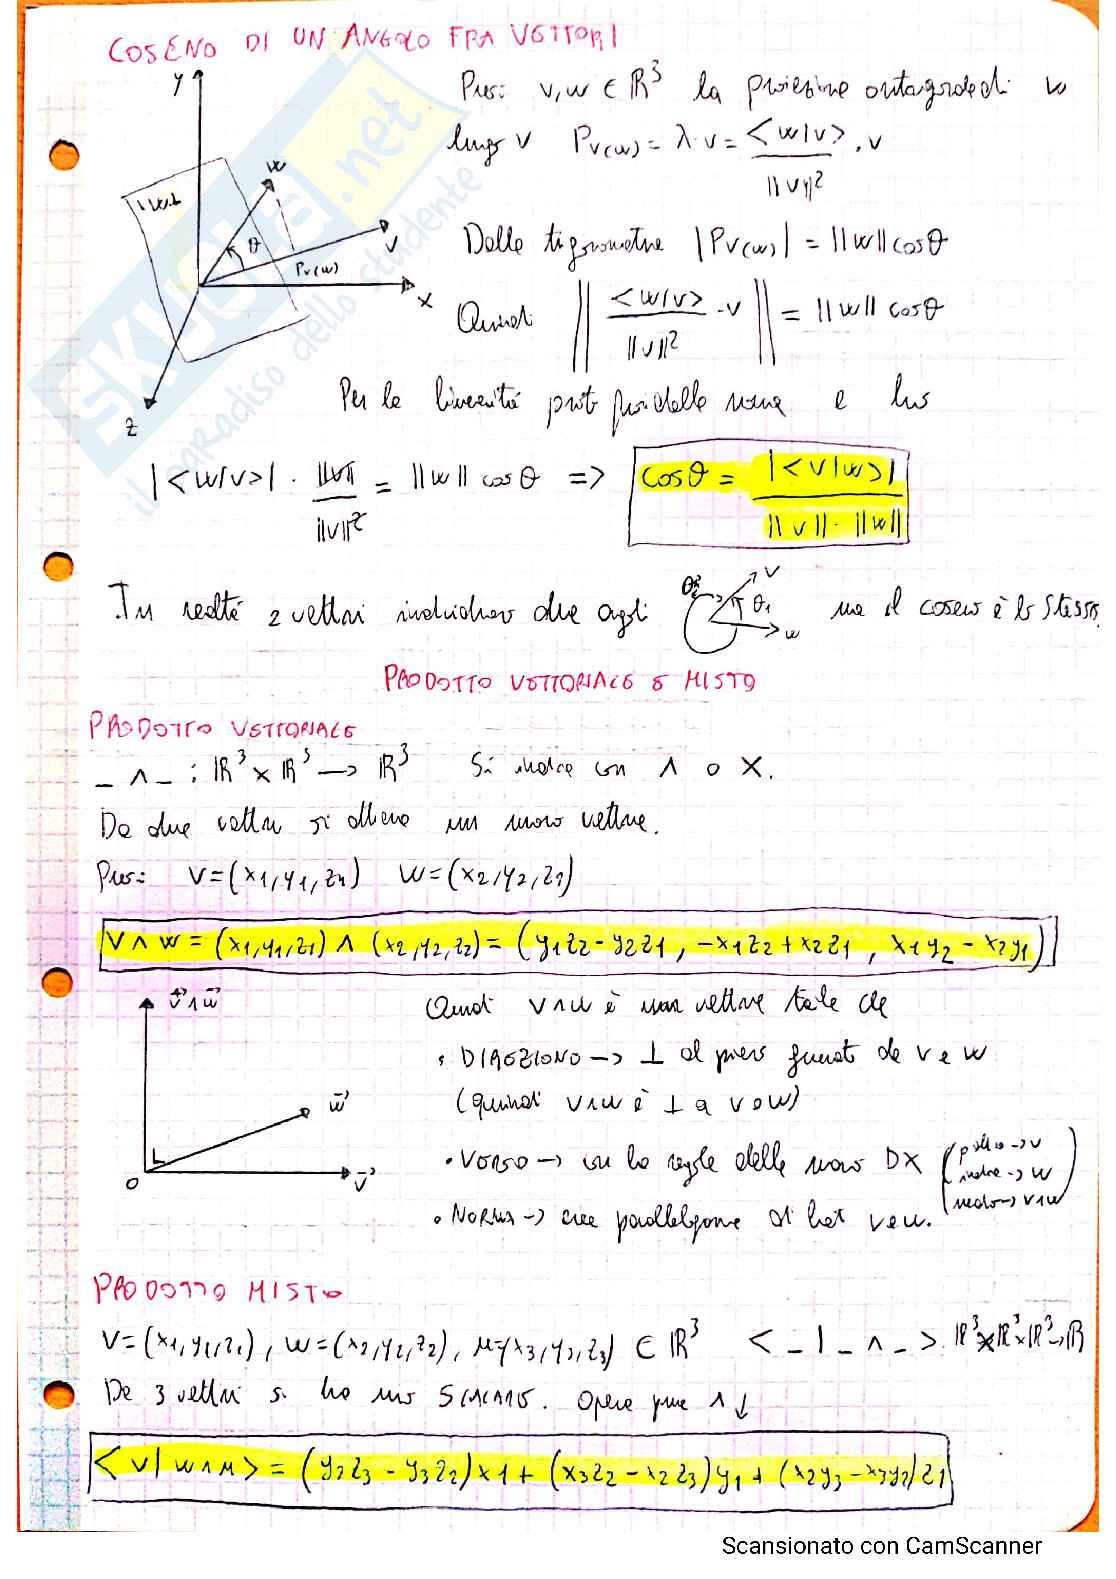 COSENO DI UN ANGOLO FRA VETTORI
Y
W
θ
V
Pv(w)
X
Z
Pres: v,w ∈ ℝ³ la proiezione ortogonale di w
lungo v Pv(w) = λ·v = <w|v> / ||v||² · v
Dalla trigonometria |Pv(w)| = ||w|| cosθ
Quindi || <w|v> / ||v||² · v || = ||w|| cosθ
Per la linearità della norma e ho
|<w|v>| · ||v|| / ||v||² = ||w|| cosθ => cosθ = |<v|w>| / ||v|| · ||w||
In realtà 2 vettori individuano due angoli θ2 v θ1 w ma il coseno è lo stesso
PRODOTTO VETTORIALE E MISTO
PRODOTTO VETTORIALE
_ ∧ _ : ℝ³ × ℝ³ → ℝ³ Si indica con ∧ o X.
Da due vettori si ottiene un nuovo vettore.
Pres: V=(x1,y1,z1) W=(x2,y2,z2)
V∧W = (x1,y1,z1) ∧ (x2,y2,z2) = (y1z2 - y2z1 , -x1z2 + x2z1 , x1y2 - x2y1)
v⃗∧w⃗
w⃗
v⃗
O
Quindi v∧w è un vettore tale che
• DIREZIONE → ⊥ al piano generato da v e w
(quindi v∧w è ⊥ a v e w)
• VERSO → con la regola della mano DX (pollice → v
indice → w
medio → v∧w)
• NORMA → area parallelogramma di lati v e w.
PRODOTTO MISTO
V=(x1,y1,z1), W=(x2,y2,z2), u=(x3,y3,z3) ∈ ℝ³ < _ | _ ∧ _ > ℝ³×ℝ³×ℝ³→ℝ
Da 3 vettori si ha uno SCALARE. Opera prima ∧ ↓
<v| w∧u> = (y2z3 - y3z2)x1 + (x3z2 - x2z3)y1 + (x2y3 - x3y2)z1
SKUOLA.net
il paradiso dello studente
Scansionato con CamScanner